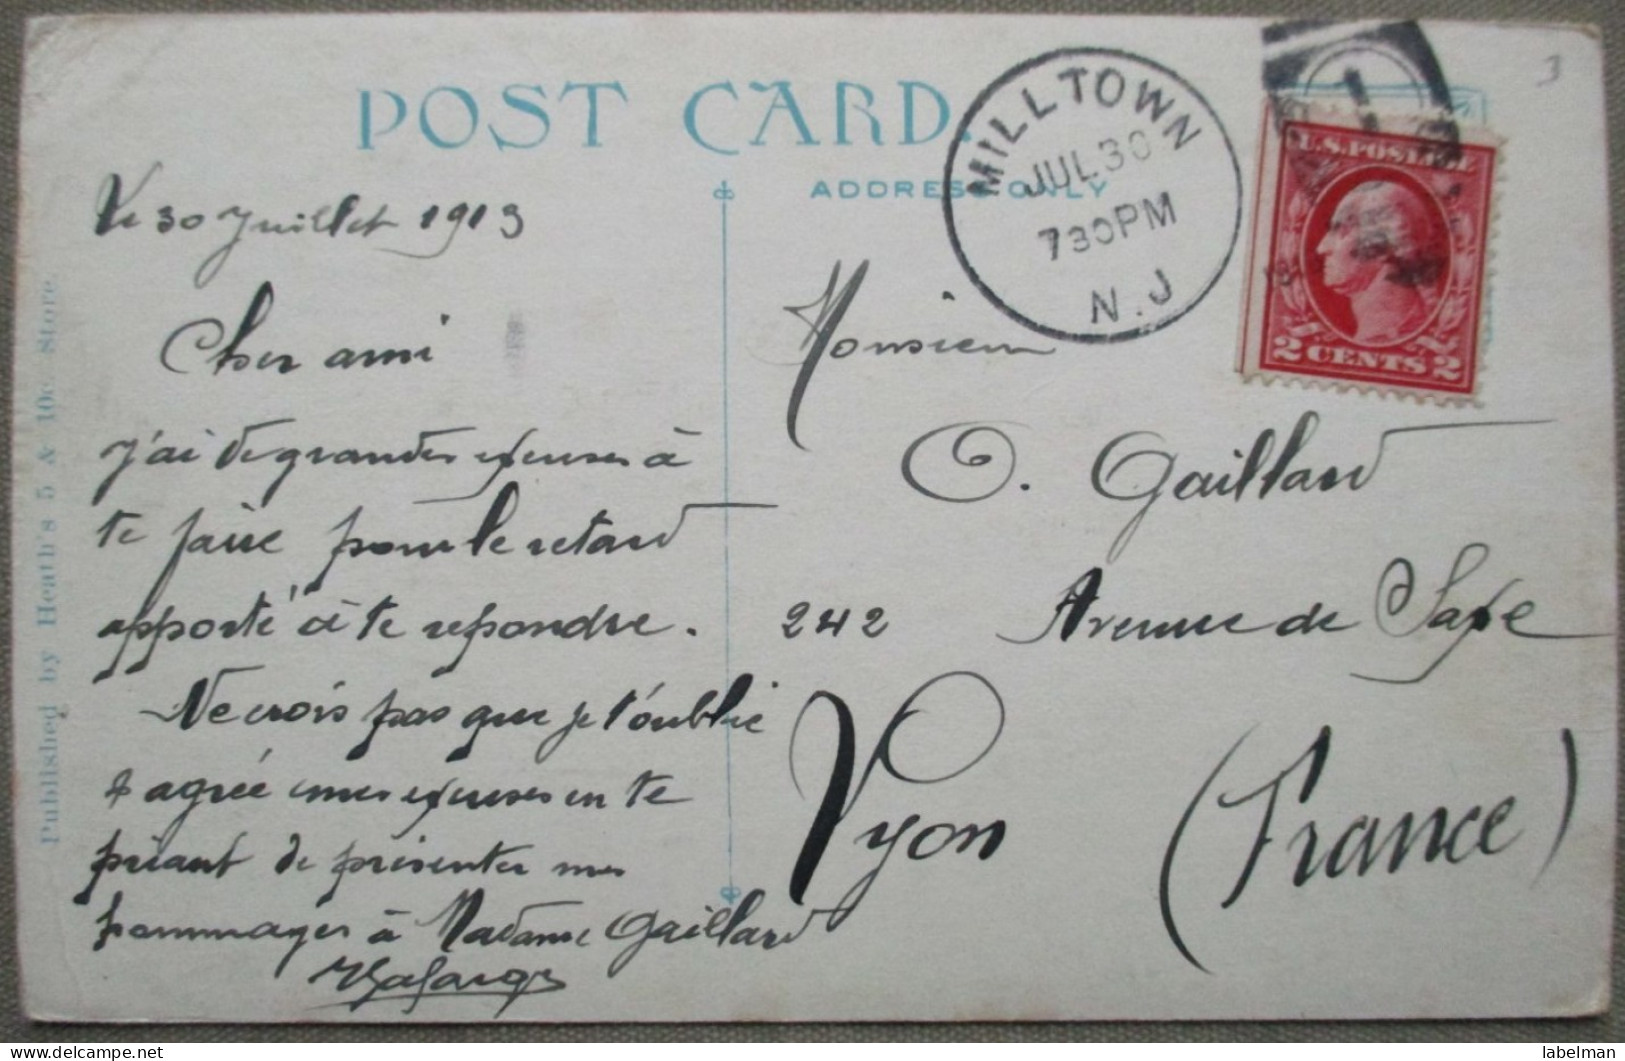 POST CARD.
ADDRESS ONLY
MILLTOWN
JUL 30
730PM
N.J
U.S. POSTAGE
2 CENTS 2
Le 30 Juillet 1913
Cher ami
J'ai de grandes excuses à
te faire pour le retard
apporté à te repondre.
Ne crois pas que je t'oublie
& agrée mes excuses en te
priant de présenter mes
hommages à Madame Gaillard
Monsieur
O. Gaillard
242 Avenue de Saxe
Lyon
(France)
Published by Heath's 5 & 10c. Store.
labelman
delcampe.net